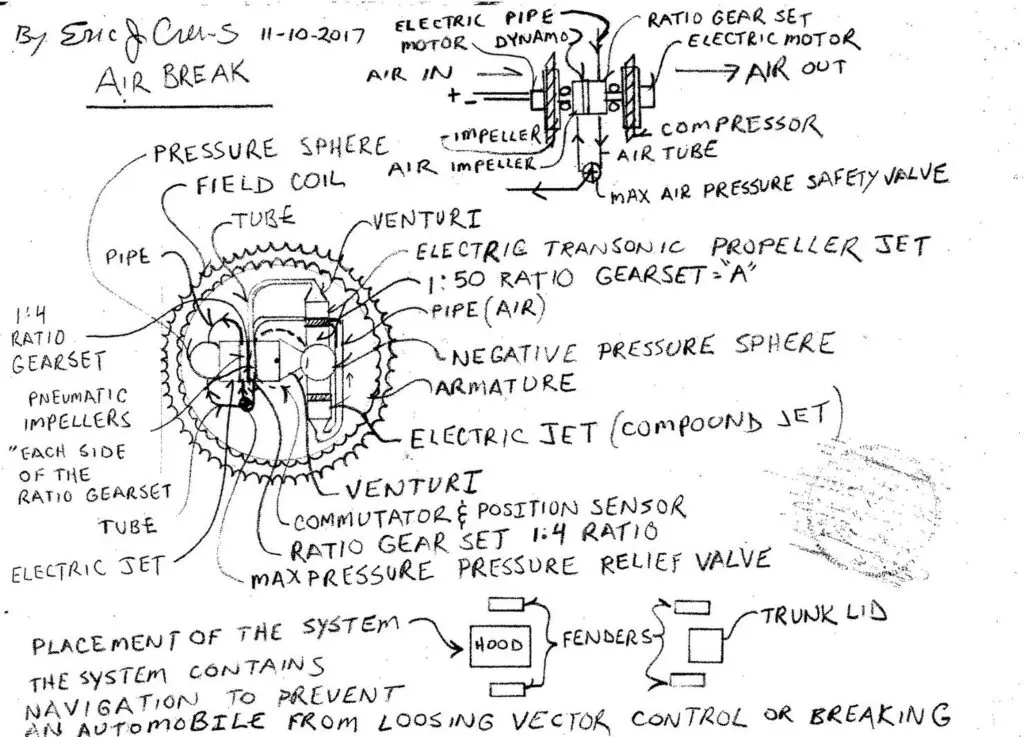 By Eric J 11-10-2017
AIR BREAK
ELECTRIC MOTOR
PIPE
DYNAMO
RATIO GEAR SET
ELECTRIC MOTOR
AIR IN
AIR OUT
+ -
IMPELLER
AIR IMPELLER
COMPRESSOR
AIR TUBE
MAX AIR PRESSURE SAFETY VALVE
PRESSURE SPHERE
FIELD COIL
TUBE
PIPE
VENTURI
ELECTRIC TRANSONIC PROPELLER JET
1:50 RATIO GEARSET="A"
PIPE (AIR)
1:4
RATIO
GEARSET
NEGATIVE PRESSURE SPHERE
ARMATURE
PNEUMATIC
IMPELLERS
"EACH SIDE
OF THE
RATIO GEARSET
ELECTRIC JET (COMPOUND JET)
TUBE
VENTURI
COMMUTATOR & POSITION SENSOR
ELECTRIC JET
RATIO GEAR SET 1:4 RATIO
MAX PRESSURE PRESSURE RELIEF VALVE
PLACEMENT OF THE SYSTEM
HOOD
FENDERS
TRUNK LID
THE SYSTEM CONTAINS
NAVIGATION TO PREVENT
AN AUTOMOBILE FROM LOOSING VECTOR CONTROL OR BREAKING